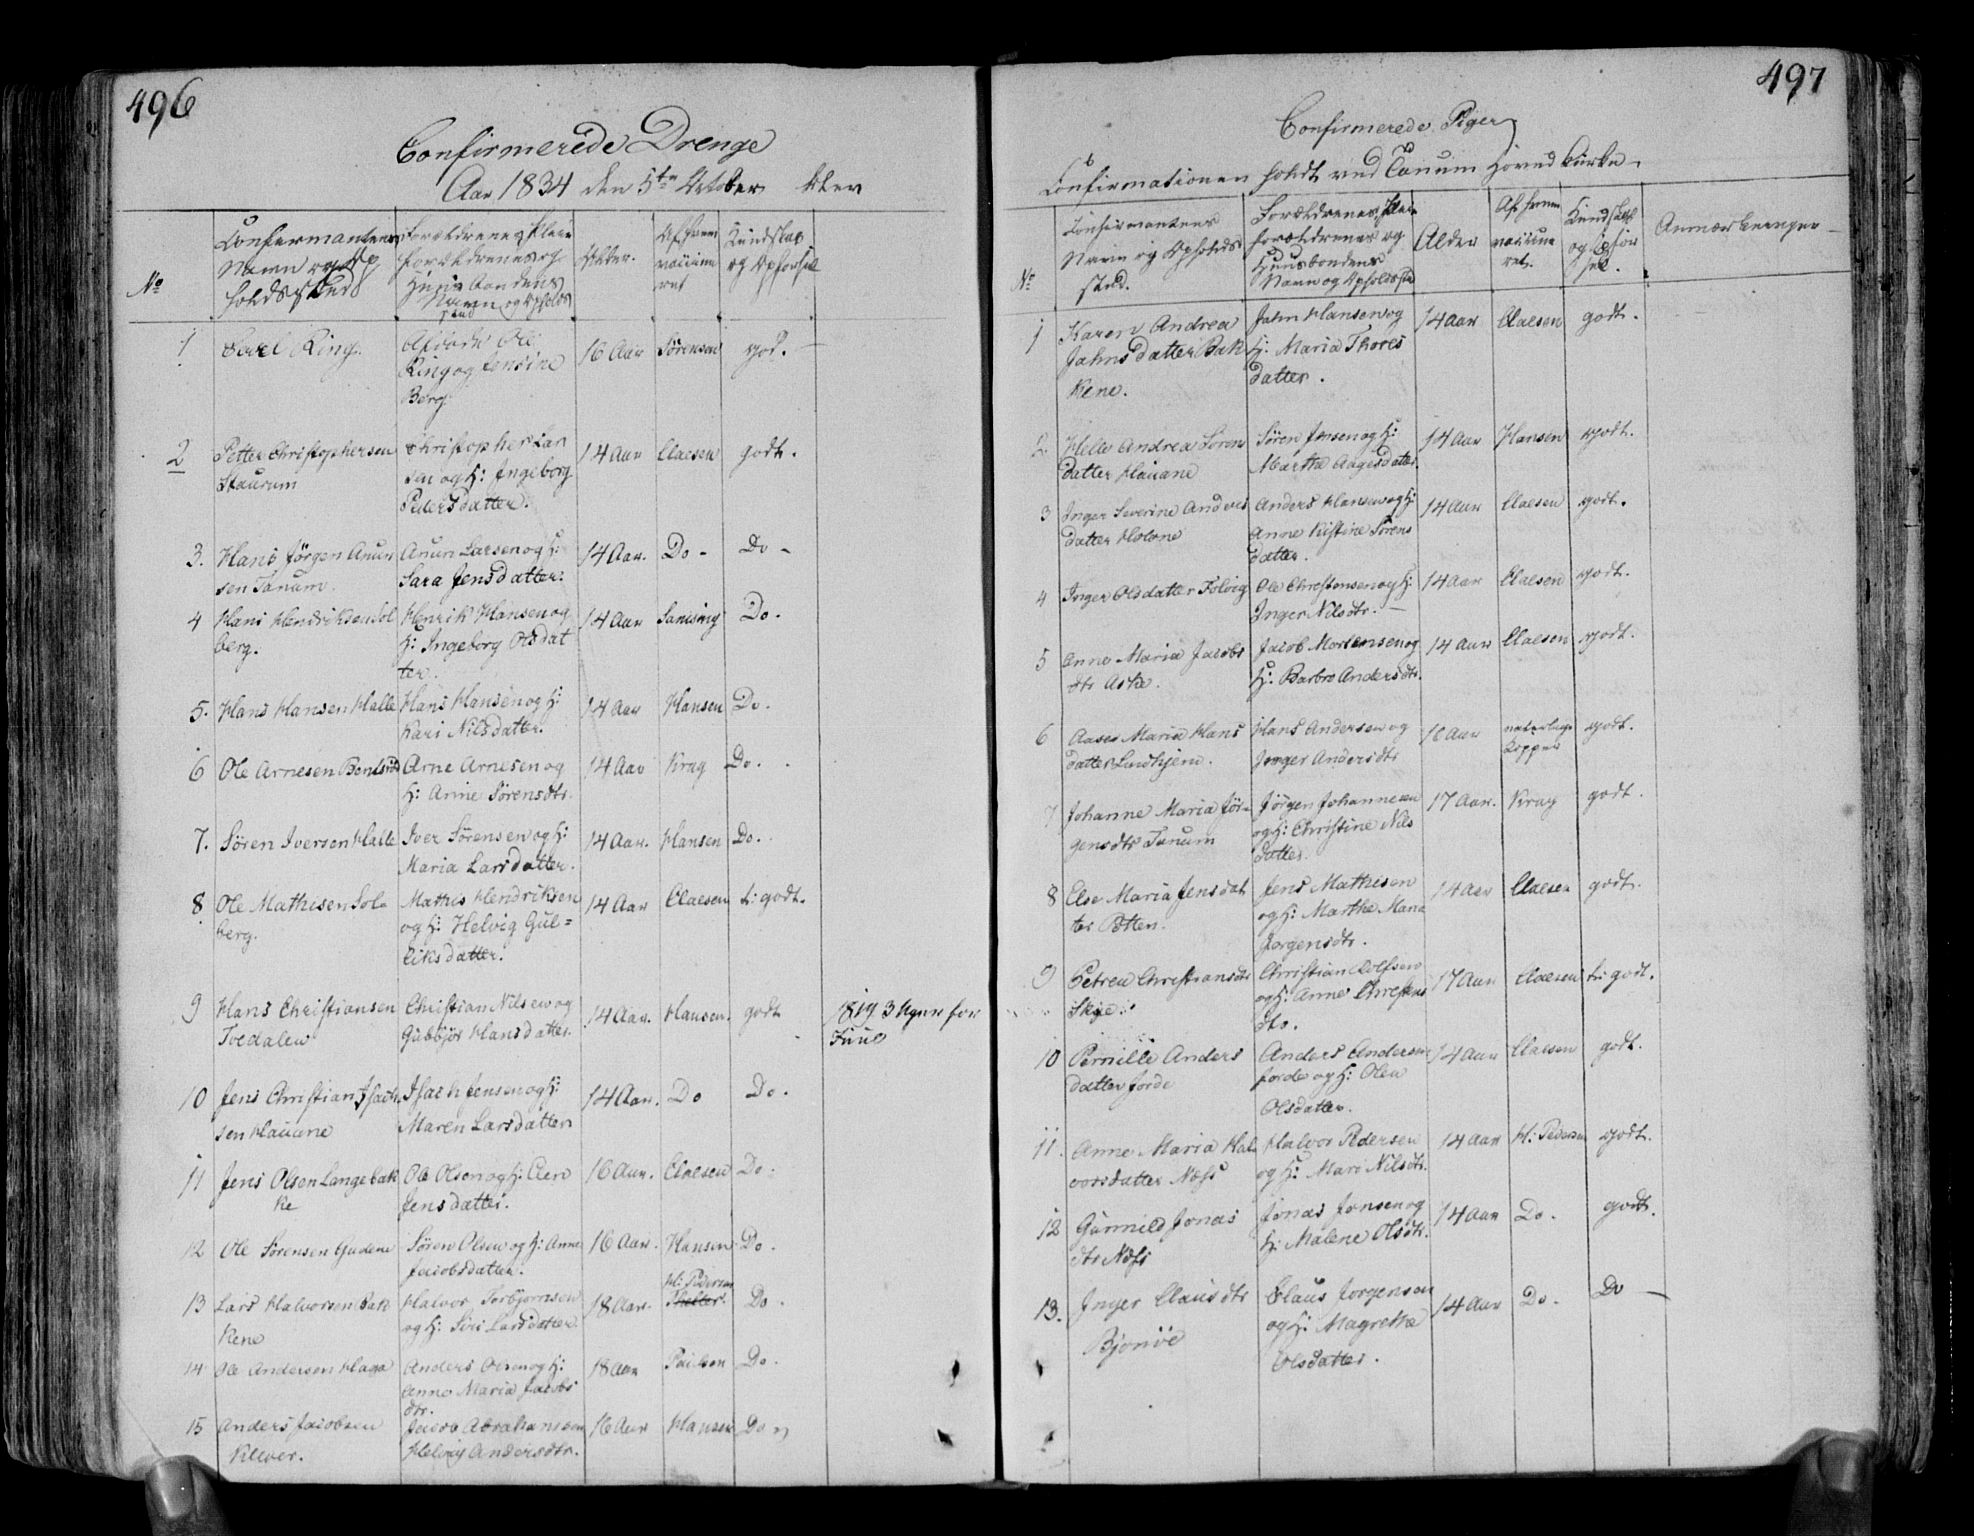 496
Confirmerede Drenge
Aar 1834 den 5te October
No
Confirmanternes
Navn og Op
holdssted
Forældrenes Pleie
forældrenes og
Huusbondens
Navn og Opholds
sted
Alder.
Af hvem
vaccine
ret
Kundskab
og Opførsel
1
Carl Ring.
Ole
Ring og Jensine
Berg
16 Aar
Sørensen
god.
2
Petter Christophersen
Staurum
Christopher Lar
sen og H: Ingeborg
Pedersdatter.
14 Aar
Claesen
godt.
3.
Hans Jørgen Anun
sen Tanum.
Anun Larsen og H:
Sara Jensdatter.
14 Aar.
Do -
Do -
4
Hans Hendriksen Sol
berg.
Henrik Hansen og
H: Ingeborg Olsdat
ter.
14 Aar
Do.
5.
Hans Hansen Halle
Hans Hansen og H:
Kari Nilsdatter.
14 Aar
Hansen
Do.
6
Ole Arnesen
Arne Arnesen og
H: Anne Sørensdtr.
14 Aar
Krag
Do.
7.
Søren Iversen Halle
Iver Sørensen og H:
Maria Larsdatter.
14 Aar.
Hansen
Do.
8
Ole Mathisen Sol-
berg.
Mathis Hendriksen
og H: Helvig Gul=
liksdatter.
14 Aar
Claesen
t: godt.
9
Hans Christiansen
Tvedalen
Christian Nilsen og
Gubbjør Hansdatter.
14 Aar.
Hansen.
godt
1819 3 Uger før
Juul
10
Jens Christian Isach
sen Hauane
Isach Jensen og H:
Maren Larsdatter
14 Aar.
Do
Do.
11
Jens Olsen Langebak
ke
Ole Olsen og H: Elen
Jensdatter.
16 Aar.
Claesen
Do.
12
Ole Sørensen Gudene
Søren Olsen og H: Anne
Jacobsdatter.
16 Aar.
Hansen
Do.
13
Lars Halvorsen Bak
kene
Halvor Torbjørnsen
og H: Siri Larsdatter
18 Aar.
H: Pedersen
Do.
14
Ole Andersen Haga
Anders Olsen og H:
Anne Maria Jacobs
dtr.
18 Aar
Poulsen
Do.
15
Anders Jacobsen
Klever.
Jacob Abrahamsen
Helvig Andersdtr.
16 Aar
Hansen
Do
497
Confirmerede Piger
Confirmationen holdt ved Tanum Hoved Kirke
No
Confirmanternes
Navn og Opholds
sted.
Forældrenes Pleie
forældrenes og
Huusbondens
Navn og Opholdssted
Alder
Af hvem
vaccine
ret.
Kundskab
og Opfør
sel.
Anmærkninger
1
Karen Andrea
Jahnsdatter Bak
kene.
Jahn Hansen og
H: Maria Thores
datter.
14 Aar
Claesen
godt.
2.
Helle Andrea Søren
datter Hauane
Søren Jensen og H:
Marthe Aagesdatter.
14 Aar
Hansen
godt.
3
Inger Severine Anders
datter Holene
Anders Hansen og H:
Anne Kistine Sørens
datter.
14 Aar
Claesen
godt.
4
Inger Olsdatter Folvig
Ole Christensen og H:
Inger Nilsdtr. —
14 Aar
Claesen
godt.
5
Anne Maria Jacobs
dtr Aske.
Jacob Mortensen og
H: Barbro Andersdtr.
14 Aar
Claesen
godt.
6
Aase Maria Hans
datter Lindhjem.
Hans Andersen og
Inger Andersdtr
16 Aar
naturlige
Kopper
godt.
7
Johanne Maria Jør-
gensdtr Tanum
Jørgen Johannesen
og H: Christine Nils
datter.
17 Aar.
Krag
godt.
8
Else Maria Jensdat
ter Pøtten.
Jens Mathisen
og H: Marthe Maria
Jorgensdtr.
14 Aar
Claesen
godt.
9
Petrea Christiansdtr
Skye.
Christian Rolfsen
og H: Anne Christens
dtr.
17 Aar
Claesen
t: godt.
10
Pernille Anders
datter Jorde
Anders Andersen
Jorde og H: Olea
Olsdatter.
14 Aar
Claesen
godt.
11.
Anne Maria Hal
vorsdatter Næss
Halvor Pedersen
og H: Mari Nilsdtr.
14 Aar
H: Pedersen
godt.
12
Gunnild Jonas
dtr Næss
Jonas Jonsen og
H: Malene Olsdtr.
14 Aar
Do.
godt.
13.
Inger Clausdtr
Bjønøe
Claus Jorgensen
og H: Magrethe
Olsdatter.
14 Aar
Do.
Do —